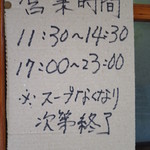 営業時間
11:30〜14:30
17:00〜23:00
※スープなくなり
次第終了